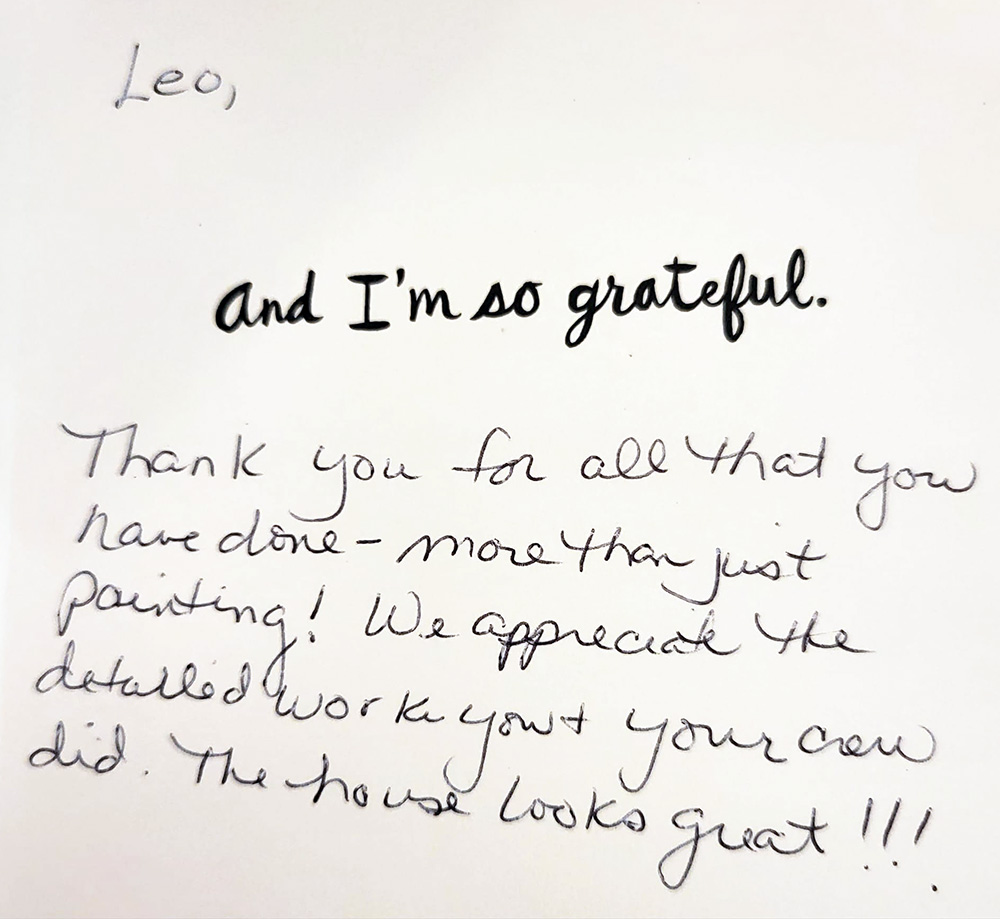 Leo,
and I'm so grateful.
Thank you for all that you
have done - more than just
painting! We appreciate the
detailed work you + your crew
did. The house looks great!!!